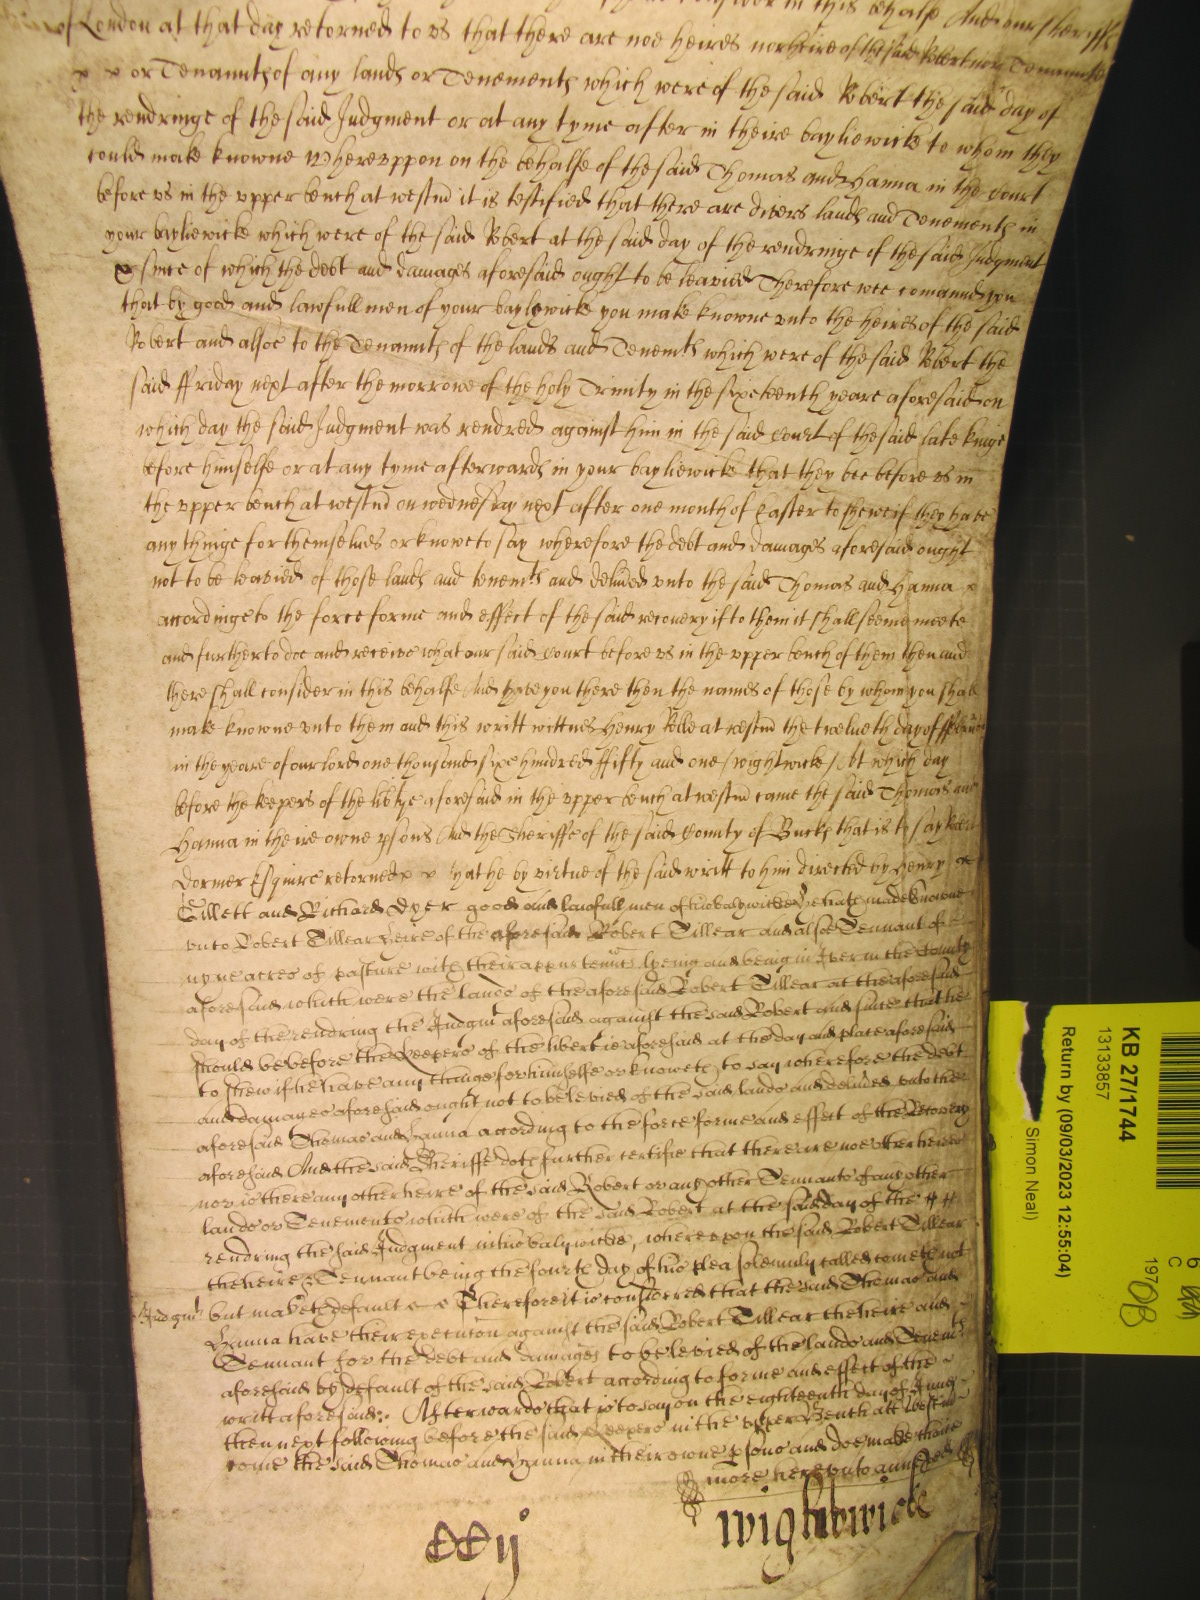 in this behalfe And our Sheriffs
of London at that day retorned to vs that there are noe heires nor heire of the said Robert nor Tenannts
or Tenannts of any lands or Tenements which were of the said Robert the said day of
the rendringe of the said Judgment or at any tyme after in theire bayliewicke to whom they
could make knowne Wherevppon on the behalfe of the said Thomas and Hanna in the Court
before vs in the vpper bench at westm it is testified that there are divers lands and Tenements in
your bayliewicke which were of the said Robert at the said day of the rendringe of the said Judgment
since of which the debt and damages aforesaid ought to be leavied Therefore wee comannd you
that by good and lawfull men of your baylywicke you make knowne vnto the heires of the said
Robert and alsoe to the Tenannts of the lands and Tenemts which were of the said Robert the
said ffriday next after the morrowe of the holy Trinity in the sixteenth yeare aforesaid on
which day the said Judgment was rendred against him in the said Court of the said late kinge
before himselfe or at any tyme afterwards in your bayliewicke that they bee before vs in
the vpper bench at westm on wednesday next after one month of Easter to shewe if they have
any thinge for themselves or knowe to say wherefore the debt and damages aforesaid ought
not to be leavied of those lands and tenemts and delivred vnto the said Thomas and Hanna
accordinge to the force forme and effect of the said recovery if to them it shall seeme meete
and further to doe and receive what our said Court before vs in the vpper bench of them then and
there shall consider in this behalfe And have you there then the names of those by whom you shall
make knowne vnto them and this writt wittnes Henry Rolle at westm the twelueth day of ffebruary
in the yeare of our lord one thousand six hundred ffifty and one /wightwicke/ At which day
before the keepers of the libtye aforesaid in the vpper bench at westm came the said Thomas and
Hanna in theire owne psons And the Sheriffe of the said County of Bucks that is to say
Dormer Esquire retorned yt he by virtue of the said writt to him directed by Henry
Tillett and Richard Dyer good and lawfull men of his baylywicke hath made knowne
vnto Robert Tillear heire of the aforesaid Robert Tillear and alsoe Tennant of
nyne acres of pasture with their appurtenncs lyeing and being in Iver in the County
aforesaid which were the lands of the aforesaid Robert Tillear at the aforesaid
day of the rendring the Judgmt aforesaid against the said Robert and since that he
should be before the Keepers of the libertie aforesaid at the day and place aforesaid
to shew if he have any thinge for himselfe or knoweth to say wherefore the debt
and damages aforesaid ought not to be levied of the said lands and delived vnto the
aforesaid Thomas and Hanna according to the force forme and effect of the Recovery
aforesaid And the said Sheriffe doth further certifie that there are noe other heires
nor is there any other heire of the said Robert or any other Tennants of any other
lands or Tenements which were of the said Robert at the said day of the
rendring the said Judgment in his baylywicke, wherevpon the said Robert Tillear
the heire & Tennant being the fourth day of his plea solemnly called cometh not
Judgmt but maketh default Therefore it is considered that the said Thomas and
Hanna have their execution against the said Robert Tillear the heire and
Tennant for the debt and damages to be levied of the lands and Tenemts
aforesaid by default of the said Robert according to forme and effect of the
writt aforesaid: Afterwards that is to say on the eighteenth day of
then next following before the said Keepers in the vpper Bench att Westm
come the said Thomas and Hanna in their owne psons and doe make
more herevnto annexed
wightwicke
CCij
KB 27/1744
13133857
Return by (09/03/2023 12:55:04)
Simon Neal)